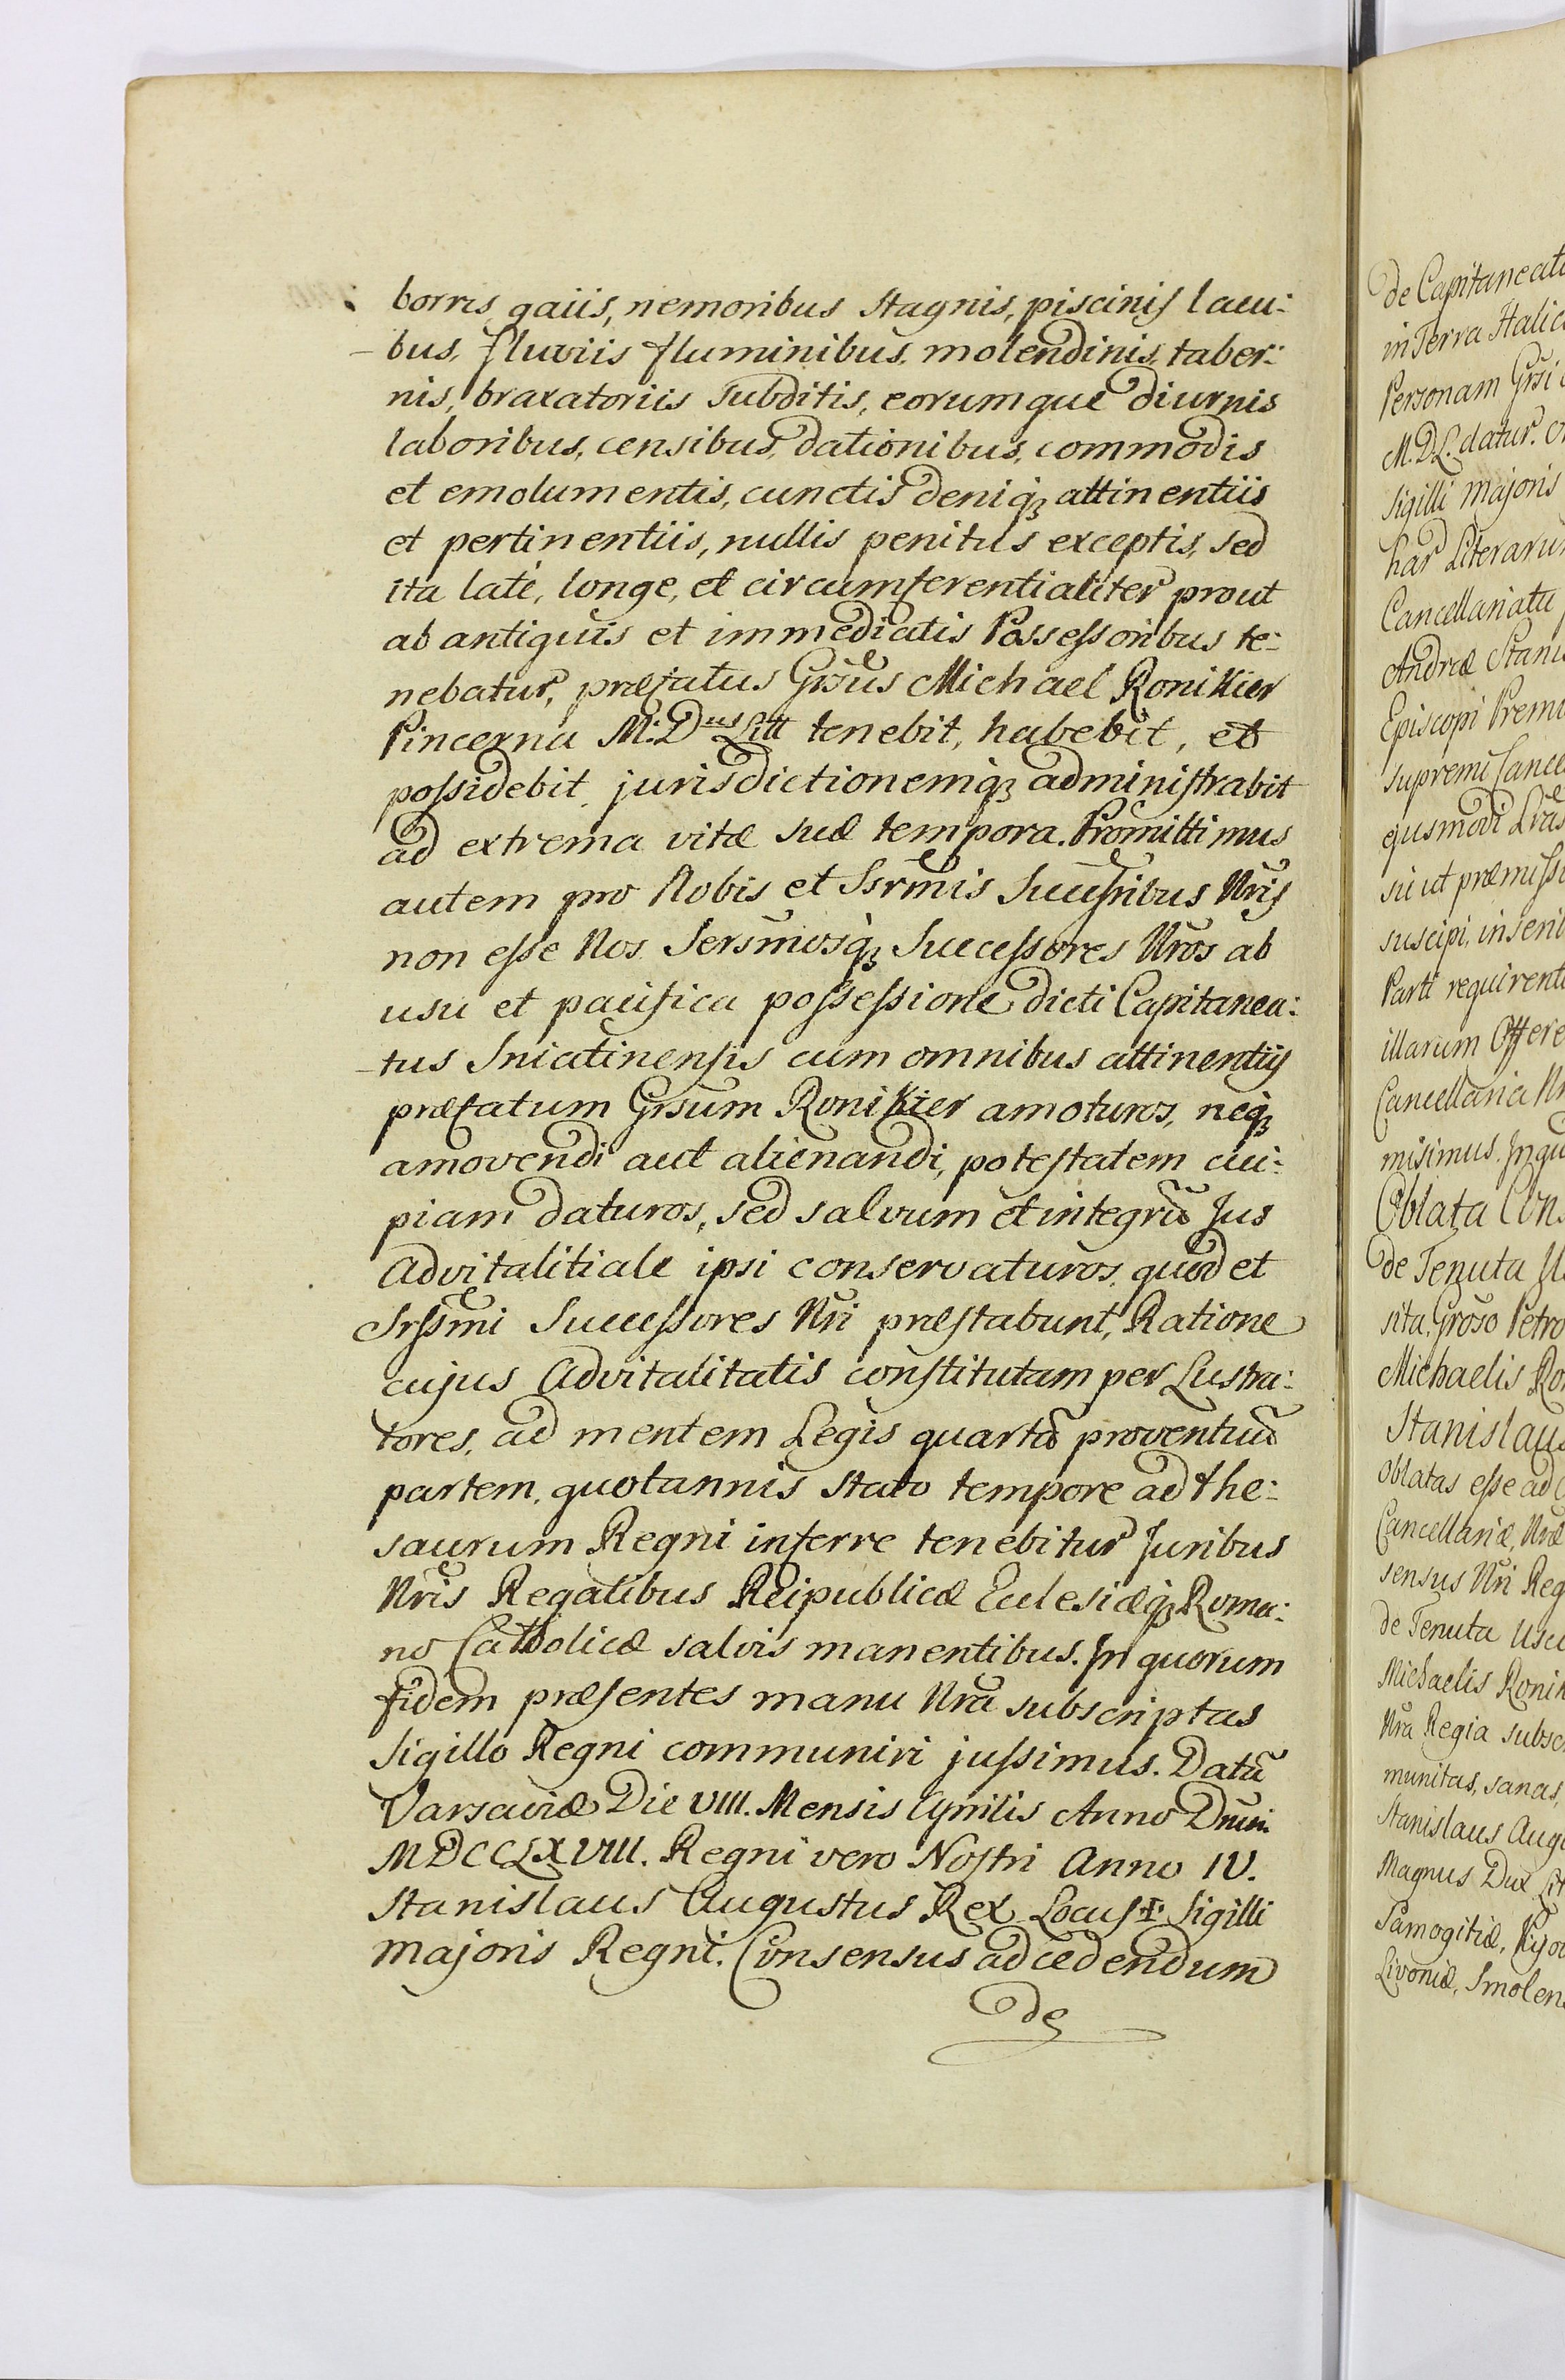 borris, gaiis, nemoribus stagnis, piscinis lacu:
bus, fluviis fluminibus, molendinis, taber:
nis, braxatoriis subditis, eorumque diurnis
laboribus, censibus, dationibus, commodis
et emolumentis, cunctis deniqꝫ attinentiis
et pertinentiis, nullis penitus exceptis, sed
ita latè, longe, et circumferentialiter prout
ab antiquis et immediatis Possessoribus te:
nebatur, præfatus Grsus Michael Ronikier
Pincerna M: Dus Litt tenebit, habebit, et
possidebit, jurisdictionemqꝫ administrabit
ad extrema vitæ suæ tempora. Promittimus
autem pro Nobis et Ssrmis Sucessribus Nris
non esse Nos Sersmosqꝫ Successores Nros ab
usu et pacifica possessione dicti Capitanea:
tus Sniatinensis cum omnibus attinentiis
præfatum Grsum Ronikier amoturos, neqꝫ
amovendi aut alienandi, potestatem cui:
piam daturos, sed salvum et integrũ Jus
Advitalitiale ipsi conservaturos, quod et
Srssmi Sucessores Nri præstabunt, Ratione
cujus Advitalitatis constitutam per Lustra:
tores, ad mentem Legis quartã proventuũ
partem, quotannis stato tempore ad the:
saurum Regni inferre tenebitur Juribus
Nris Regalibus Reipublicæ Eclesiæqꝫ Roma:
no Catholicæ salvis manentibus. In quorum
fidem præsentes manu Nra subscriptas
Sigillo Regni communiri jussimus. Datũ
Varsaviæ Die VIII. Mensis Aprilis Anno Dnini
MDCCLXVIII. Regni vero Nostri Anno IV.
Stanislaus Augustus Rex Locus ✝ Sigilli
majoris Regni. Consensus ad cedendum
de
de Capitaneat
in Terra Halic
Personam Grsi
M. D. L. datur.
Sigilli majoris
har Literaru
Cancellariatu
Andræ Stani
Episcopi Premi
supremi Cance
ejusmodi Lras
sicut præmissi
suscipi, inseri
Parti requirenti
illarum Offere
Cancellaria Nr
misimus. In qu
Oblata Con
de Tenuta Us
sita, Groso Petro
Michaelis Ro
Stanislau
oblatas esse ad
Cancellariæ, Nræ
sensus Nri Reg
de Tenuta Usc
Michaelis Ronik
Nra Regia subsc
munitas, sanas,
Stanislaus Aug
Magnus Dux Lit
Samogitiæ, Kijo
Livoniæ, Smolen